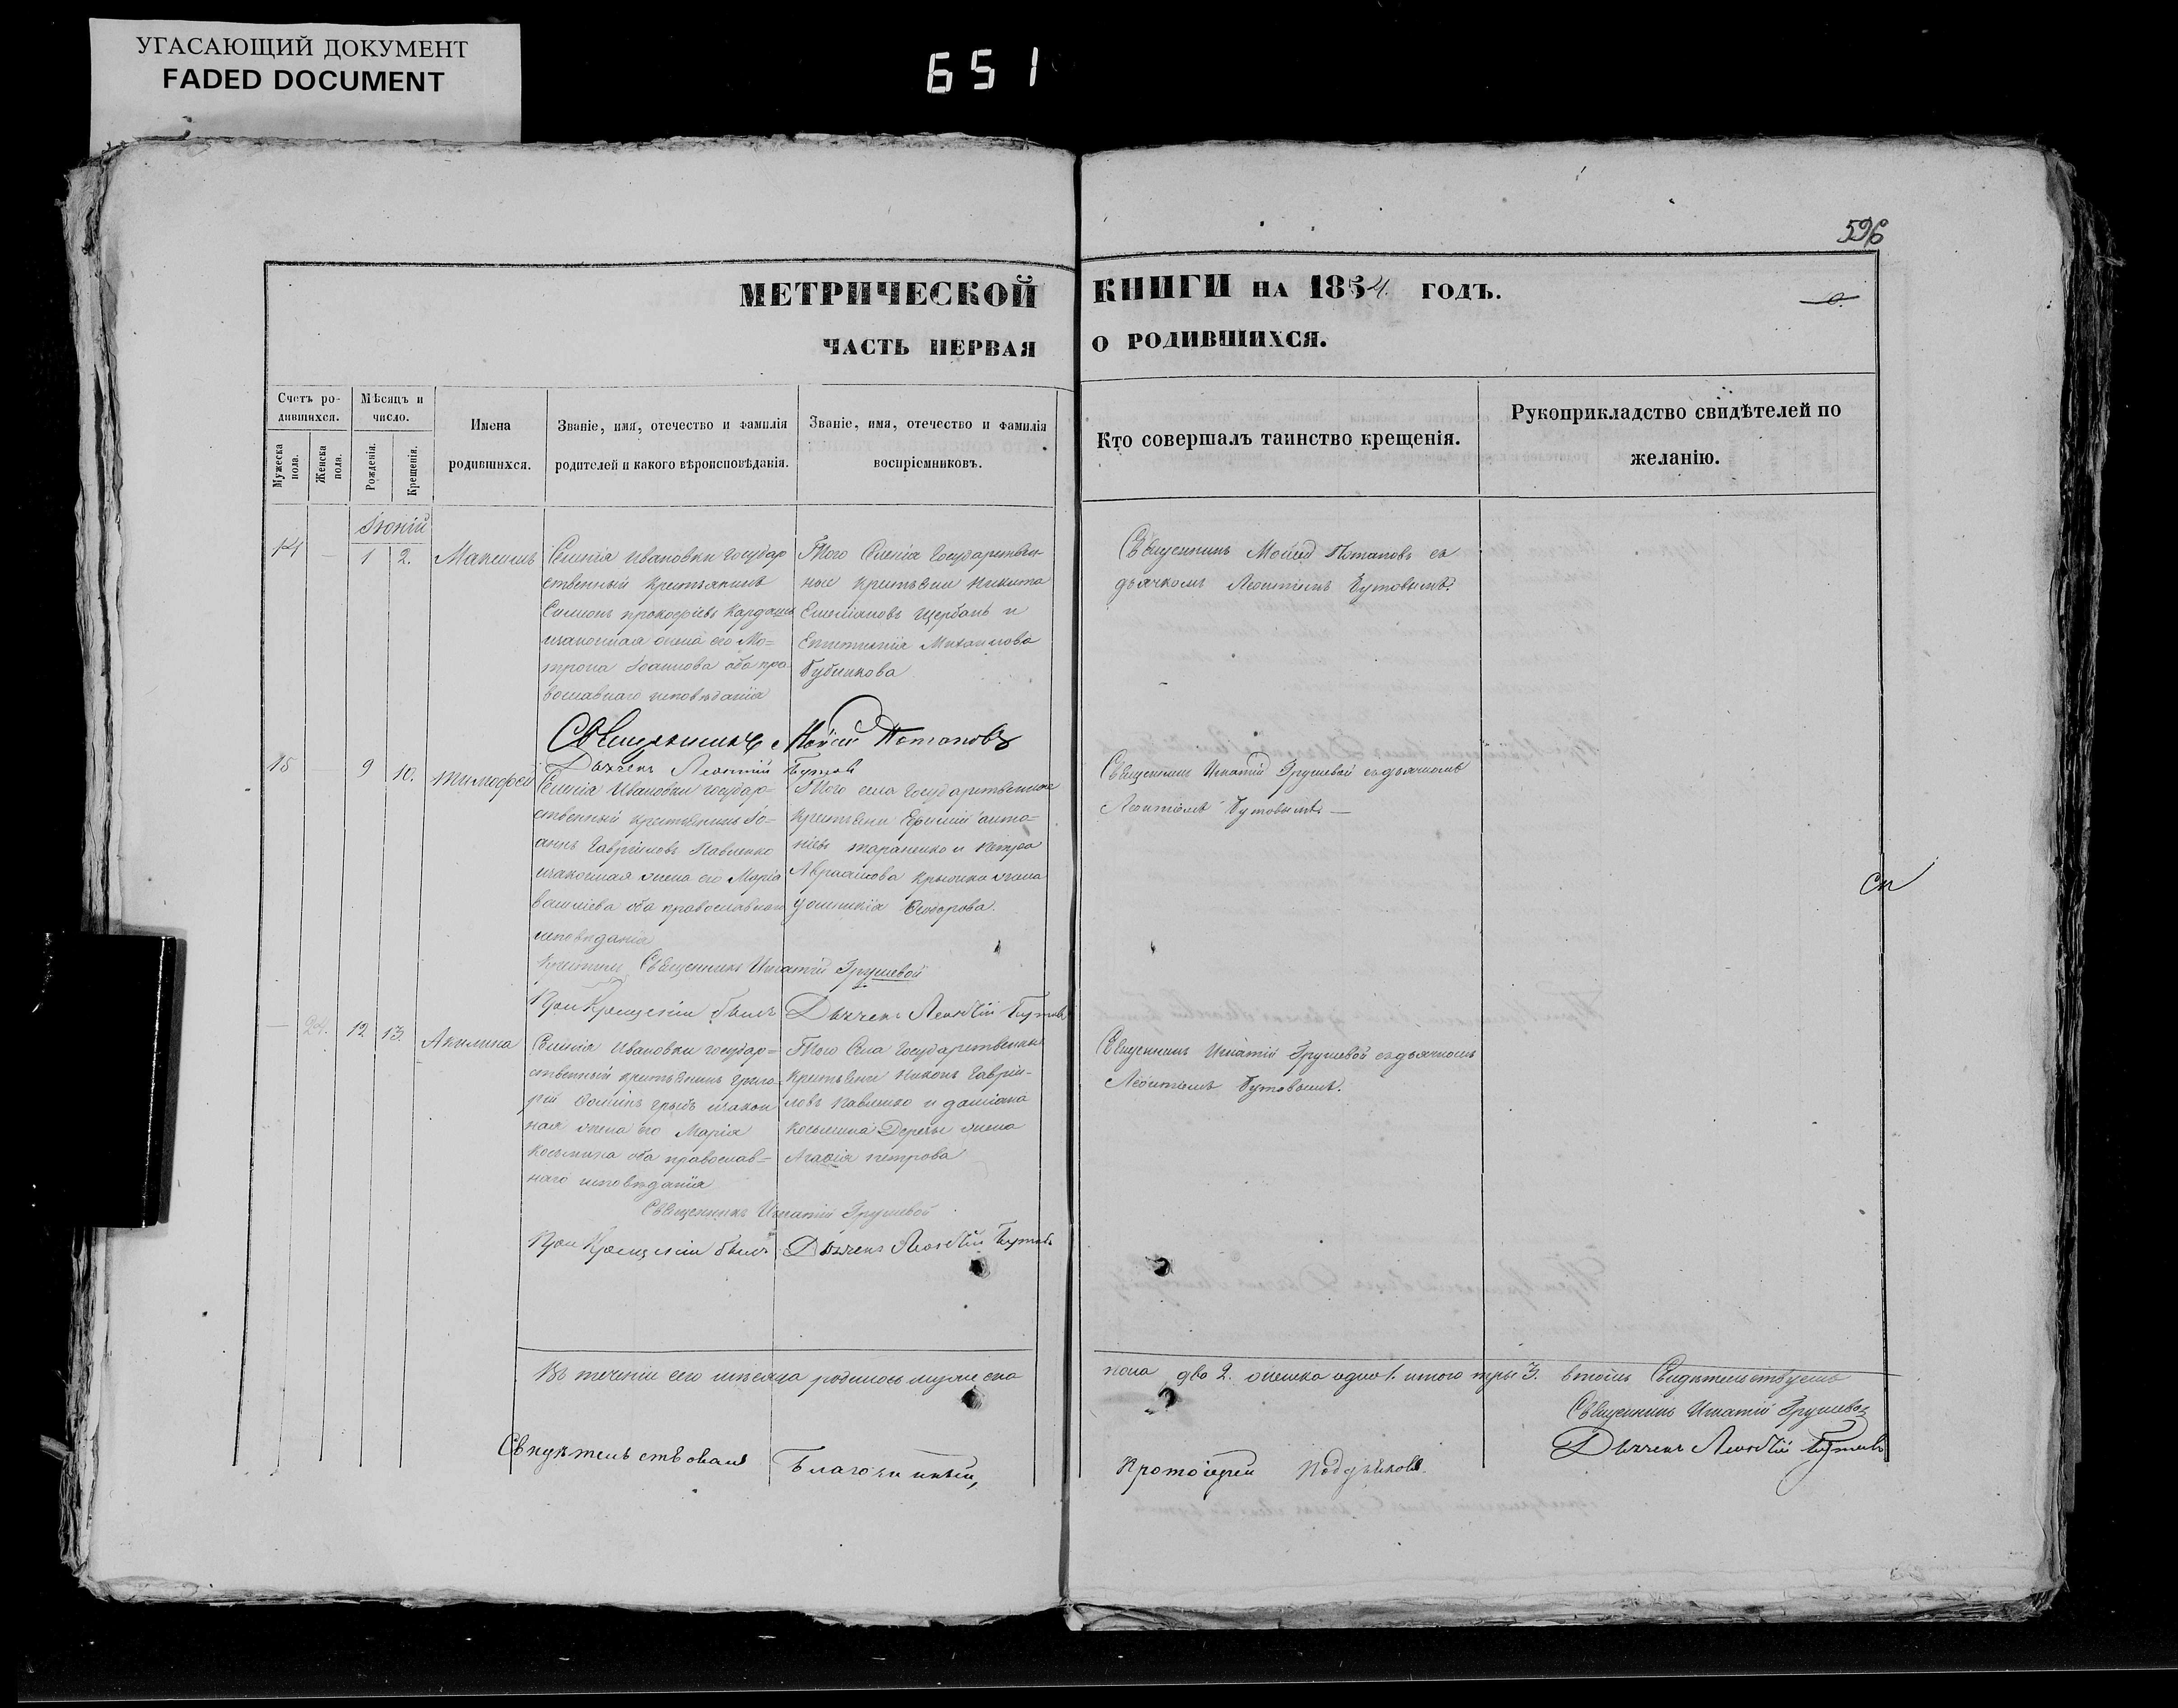 УГАСАЮЩИЙ ДОКУМЕНТ
FADED DOCUMENT
651
596
МЕТРИЧЕСКОЙ КНИГИ НА 1854. ГОДЪ.
ЧАСТЬ ПЕРВАЯ О РОДИВШИХСЯ.
Счетъ ро-
дившихся.
Мужеска
пола.
Женска
пола.
Мѣсяцъ и
число.
Рожденія.
Крещенія.
Имена
родившихся.
Званіе, имя, отечество и фамилія
родителей и какого вѣроисповѣданія.
Званіе, имя, отечество и фамилія
воспріемниковъ.
Кто совершалъ таинство крещенія.
Рукоприкладство свидѣтелей по
желанію.
Іюній
14 — 1 2. Максимъ
Селенія Ивановки государ
ственный крестьянинъ
Симионъ Прокофіевъ Кардашъ
изаконная жена его Ма-
трона Іоаннова оба пра-
вославнаго исповѣданія
Того Селенія Государствен-
ные крестьяни Никита
Симіановъ Щербань и
Михаилова
Священникъ Мойсей Потаповъ съ
дьячкомъ Леонтіемъ Бутовымъ.
Священникъ Мойсей Потаповъ
Дьячекъ Леонтій Бутов
15 — 9 10. Тимофей
Селенія Ивановки государ-
ственный крестьянинъ Іо-
аннъ Гавріиловъ Павленко
изаконная жена его Марія
Василіева оба православнаго
исповѣданія
Того села Государственные
крестьяни Ефимій Анто-
ніевъ Тараненко и Петра
Авраамова жена
Ѳеодорова.
Священникъ Игнатій Грушевой съдьячкомъ
Леонтіемъ Бутовымъ. —
Священникъ Игнатій Грушевой
При Крещеніи былъ Дьячекъ Леонтій Бутовъ
— 24. 12. 13. Акилина
Селенія Ивановки государ-
ственный крестьянинъ Григо-
рій Ѳоминъ изакон
ная жена его Марія
Косьмина оба православ-
наго исповѣданія
Того Села Государственны
крестьяни Никонъ Гаврiи-
ловъ Павленко и Даміана
Косьмина жена
Агафія Петрова
Священникъ Игнатій Грушевой съдьячкомъ
Леонтіемъ Бутовымъ.
Священникъ Игнатій Грушевой
При Крещеніи былъ Дьячекъ Леонтій Бутовъ
Въ теченіи сего мѣсяца родилось мужеска
пола два 2. женска одно 1. итого три 3. втомъ Свидѣтельствуемъ
Священникъ Игнатій Грушевой
Дьячекъ Леонтій Бутовъ
Свидѣтельствовалъ Благочинный,
Протоіерей